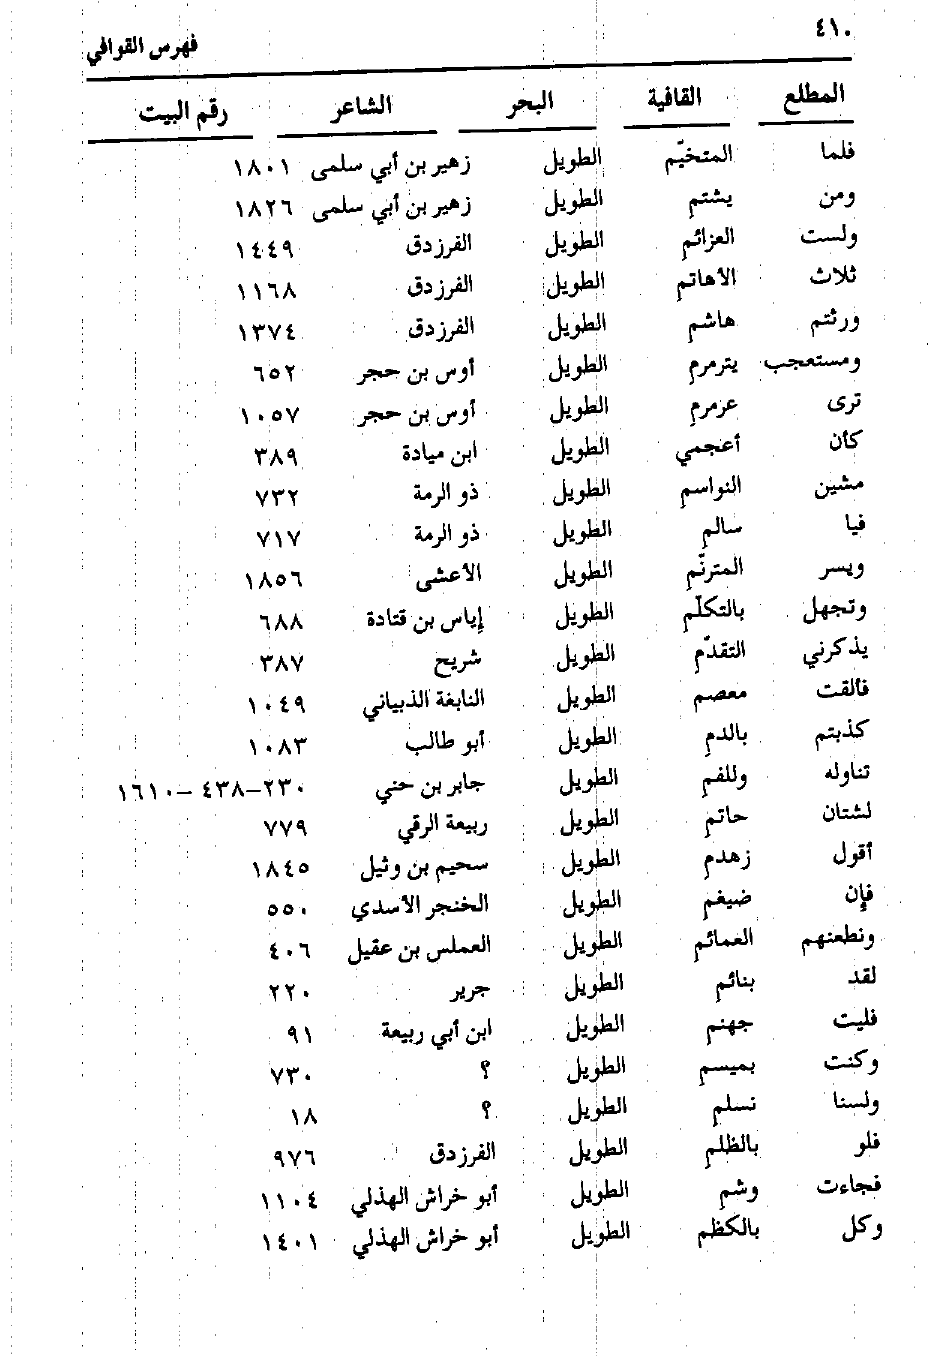 ٤١٠ فهرس القوافي
المطلع القافية البحر الشاعر رقم البيت
فلما المتخيّم الطويل زهير بن أبي سلمى ١٨٠١
ومن يشتم الطويل زهير بن أبي سلمى ١٨٢٦
ولست العزائمِ الطويل الفرزدق ١٤٤٩
ثلاث الأهاتمِ الطويل الفرزدق ١١٦٨
ورثتم هاشم الطويل الفرزدق ١٣٧٤
ومستعجب يترمرمِ الطويل أوس بن حجر ٦٥٢
ترى عرمرمِ الطويل أوس بن حجر ١٠٥٧
كأن أعجمي الطويل ابن ميادة ٣٨٩
مشين النواسمِ الطويل ذو الرمة ٧٣٢
فيا سالمِ الطويل ذو الرمة ٧١٧
ويسر المترنّمِ الطويل الأعشى ١٨٥٦
وتجهل بالتكلّم الطويل إياس بن قتادة ٦٨٨
يذكرني التقدّمِ الطويل شريح ٣٨٧
فألقت معصم الطويل النابغة الذبياني ١٠٤٩
كذبتم بالدمِ الطويل أبو طالب ١٠٨٣
تناوله وللفمِ الطويل جابر بن حني ٢٣٠–٤٣٨–١٦١٠
لشتان حاتمِ الطويل ربيعة الرقي ٧٧٩
أقول زهدمِ الطويل سحيم بن وثيل ١٨٤٥
فإن ضيغمِ الطويل الخنجر الأسدي ٥٥٠
ونطعنهم العمائمِ الطويل العملس بن عقيل ٤٠٦
لقد بنائمِ الطويل جرير ٢٢٠
فليت جهنمِ الطويل ابن أبي ربيعة ٩١
وكنت بميسمِ الطويل ؟ ٧٣٠
ولسنا نسلمِ الطويل ؟ ١٨
فلو بالظلمِ الطويل الفرزدق ٩٧٦
فجاءت وشمِ الطويل أبو خراش الهذلي ١١٠٤
وكل بالكظمِ الطويل أبو خراش الهذلي ١٤٠١